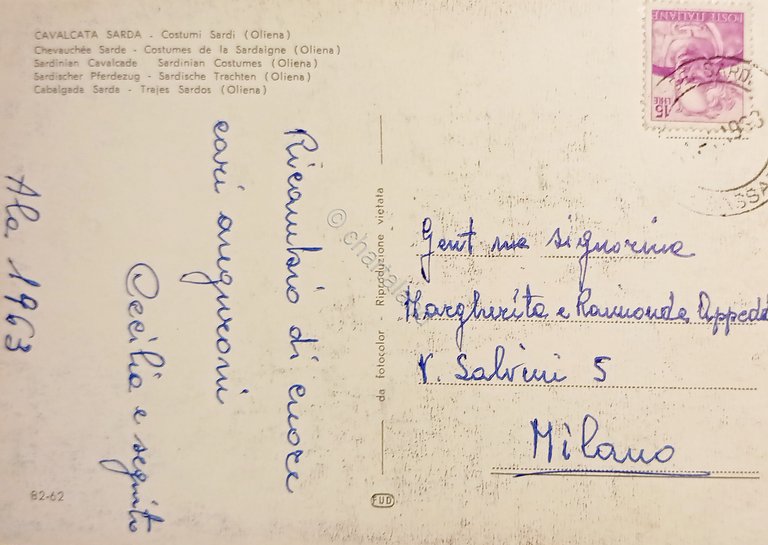 CAVALCATA SARDA - Costumi Sardi (Oliena)
Chevauchée Sarde - Costumes de la Sardaigne (Oliena)
Sardinian Cavalcade Sardinian Costumes (Oliena)
Sardischer Pferdezug - Sardische Trachten (Oliena)
Cabalgada Sarda - Trajes Sardos (Oliena)
Ricambio di cuore
cari auguroni
Cecilia e seguito
Ala 1963
da fotocolor - Riproduzione vietata
POSTE ITALIANE
15 LIRE
1963
Gent ma signorina
Margherita e Raimonda Appeddu
V. Salvini 5
Milano
82-62
FUD